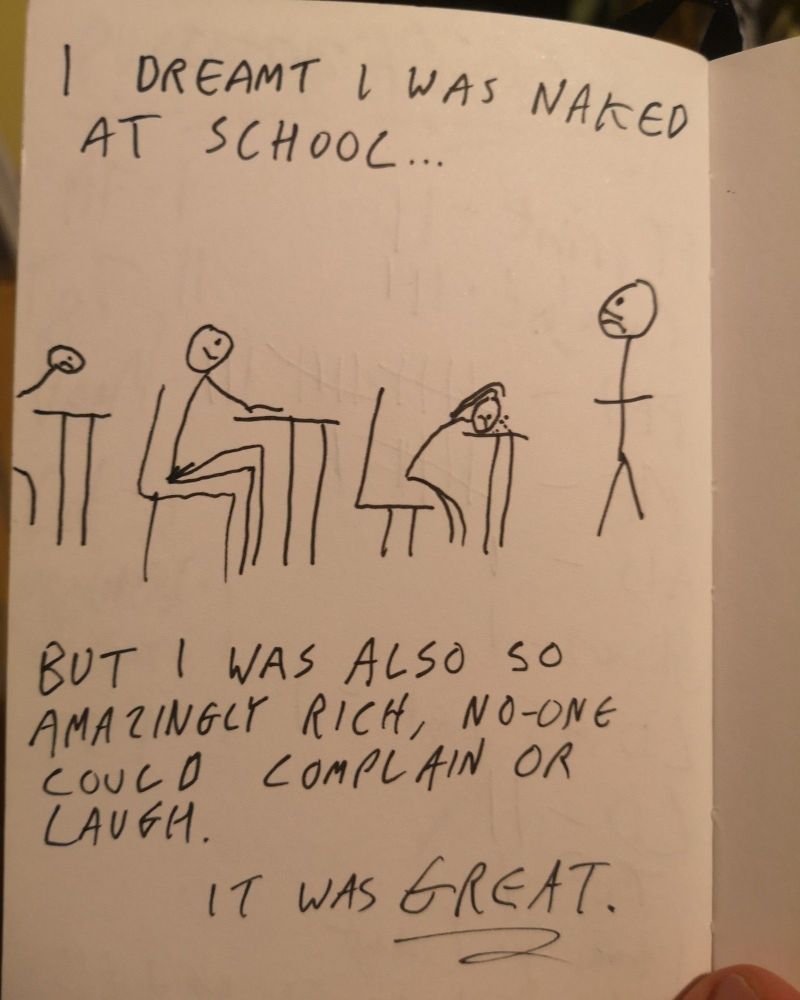 I DREAMT I WAS NAKED
AT SCHOOL...
BUT I WAS ALSO SO
AMAZINGLY RICH, NO-ONE
COULD COMPLAIN OR
LAUGH.
IT WAS GREAT.